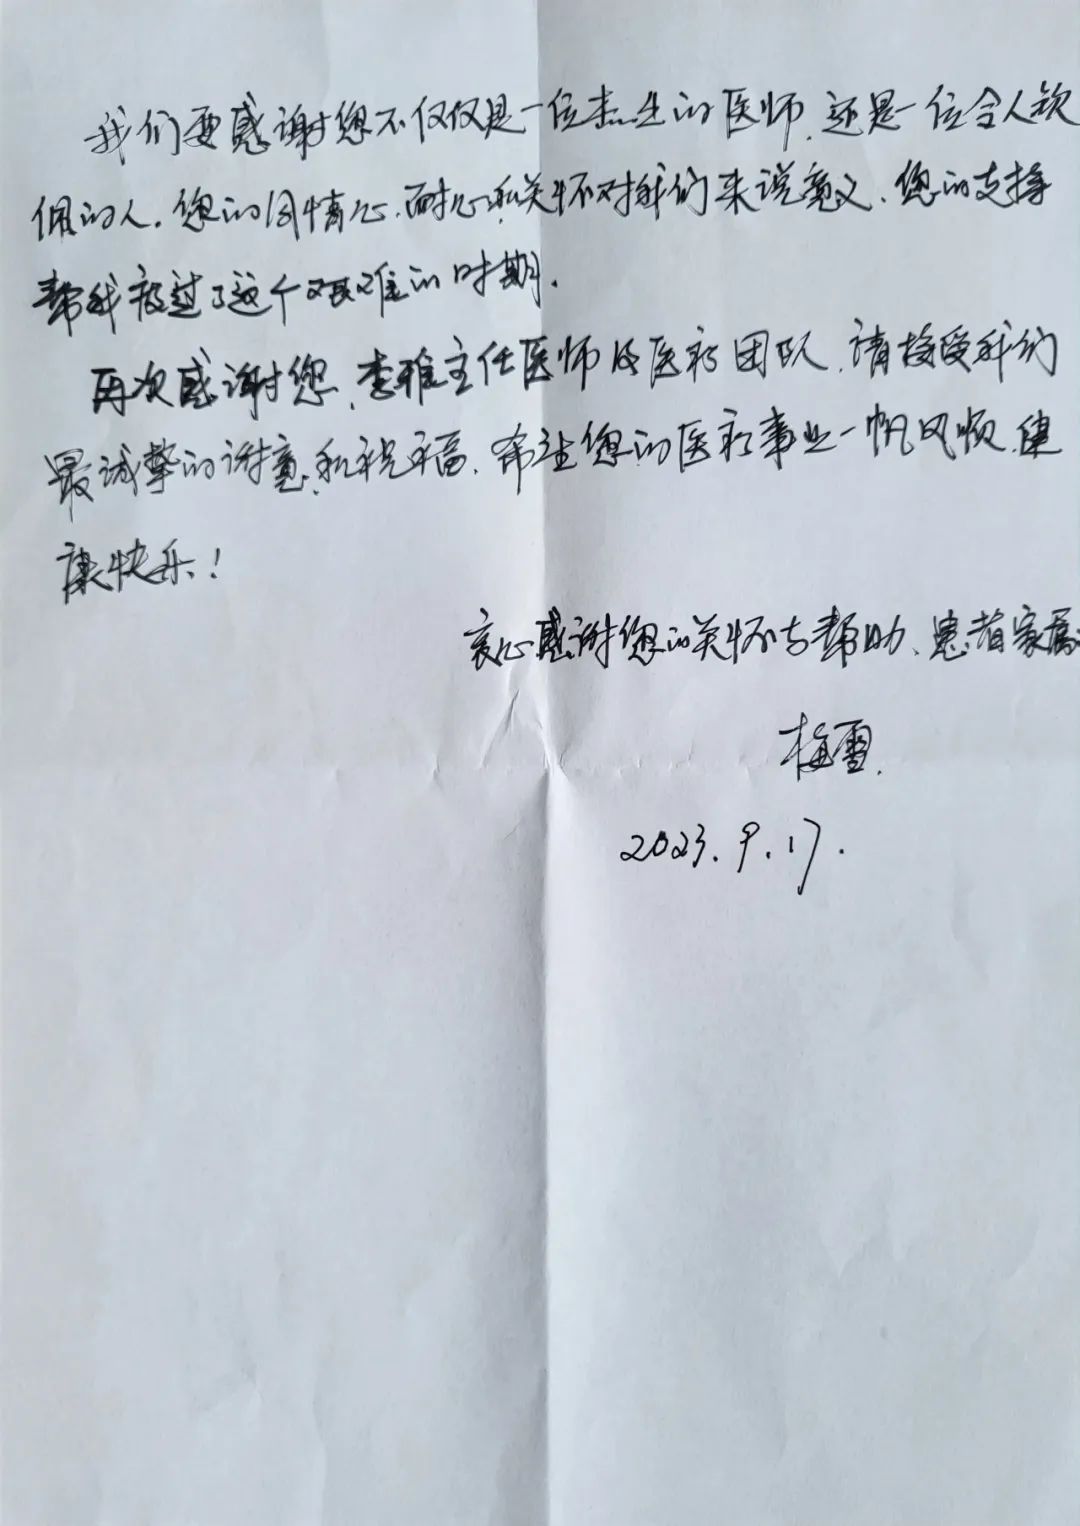 我们要感谢您不仅仅是一位杰出的医师,还是一位令人钦
佩的人.您的同情心.耐心和关怀对我们来说意义.您的支持
帮我度过了这个艰难的时期.
再次感谢您,李雅主任医师及医疗团队,请接受我们
最诚挚的谢意,和祝福.希望您的医疗事业一帆风顺,健
康快乐!
衷心感谢您的关怀与帮助、患者家属
梅雪.
2023.9.17.